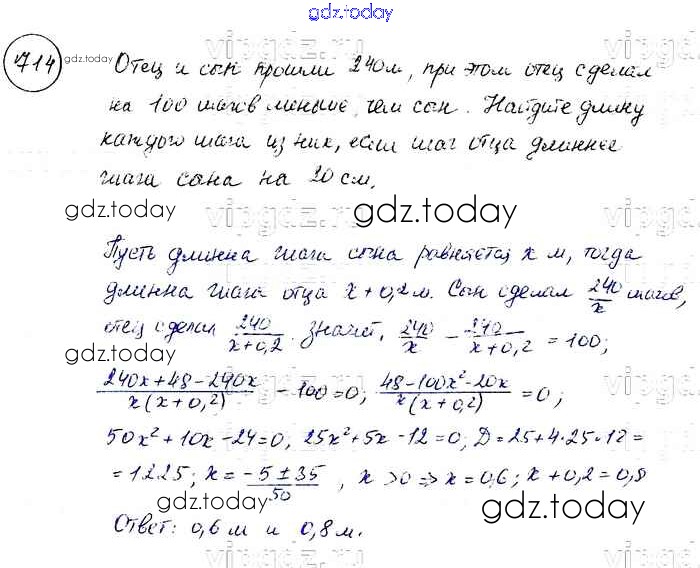 gdz.today
714 gdz.today Отец и сын прошли 240 м, при этом отец сделал
на 100 шагов меньше, чем сын. Найдите длину
каждого шага из них, если шаг отца длиннее
шага сына на 20 см.
gdz.today gdz.today
Пусть длинна шага сына равняется x м, тогда
длинна шага отца x + 0,2 м. Сын сделал 240/x шагов,
отец сделал 240/(x+0,2). Значит, 240/x − 240/(x+0,2) = 100;
gdz.today
(240x + 48 − 240x)/(x(x+0,2)) − 100 = 0; (48 − 100x² − 20x)/(x(x+0,2)) = 0;
50x² + 10x − 24 = 0; 25x² + 5x − 12 = 0; D = 25 + 4·25·12 =
= 1225; x = (−5 ± 35)/50, x > 0 ⇒ x = 0,6; x + 0,2 = 0,8
gdz.today gdz.today
Ответ: 0,6 м и 0,8 м.
vipgdz.today